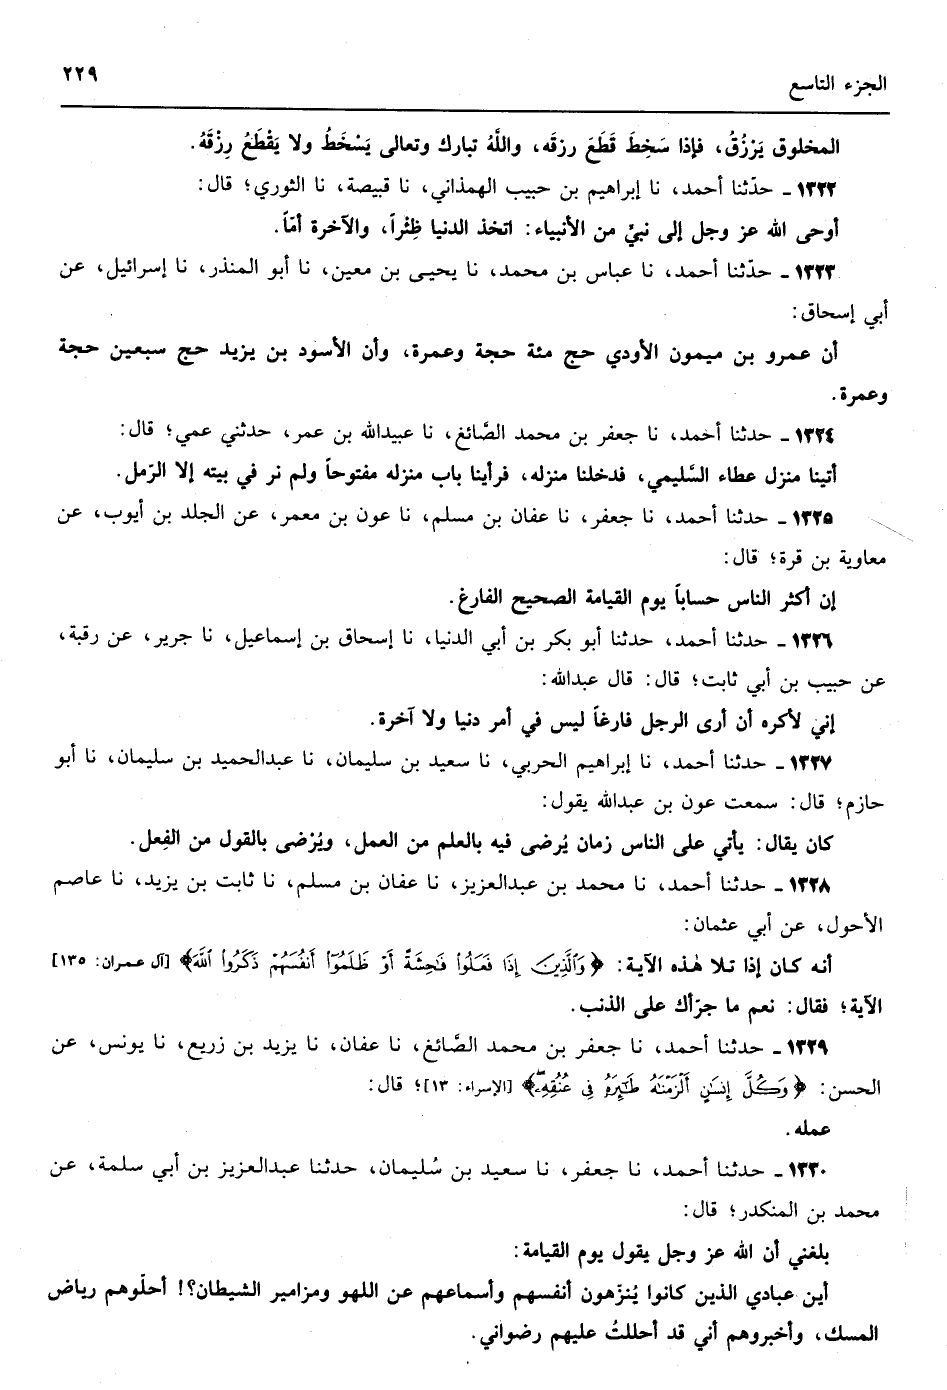 الجزء التاسع
٢٢٩
المخلوق يَرْزُقُ، فإذا سَخِطَ قَطَعَ رزقَه، واللَّهُ تبارك وتعالى يَسْخَطُ ولا يَقْطَعُ رِزْقَهُ.
١٣٢٢ ـ حدّثنا أحمد، نا إبراهيم بن حبيب الهمذاني، نا قبيصة، نا الثوري؛ قال:
أوحى الله عز وجل إلى نبيّ من الأنبياء: اتخذ الدنيا ظِئْراً، والآخرة أمّاً.
١٣٢٣ ـ حدّثنا أحمد، نا عباس بن محمد، نا يحيى بن معين، نا أبو المنذر، نا إسرائيل، عن
أبي إسحاق:
أن عمرو بن ميمون الأودي حج مئة حجة وعمرة، وأن الأسود بن يزيد حج سبعين حجة
وعمرة.
١٣٢٤ ـ حدثنا أحمد، نا جعفر بن محمد الصَّائغ، نا عبيدالله بن عمر، حدثني عمي؛ قال:
أتينا منزل عطاء السَّليمي، فدخلنا منزله، فرأينا باب منزله مفتوحاً ولم نر في بيته إلا الرّمل.
١٣٢٥ ـ حدثنا أحمد، نا جعفر، نا عفان بن مسلم، نا عون بن معمر، عن الجلد بن أيوب، عن
معاوية بن قرة؛ قال:
إن أكثر الناس حساباً يوم القيامة الصحيح الفارغ.
١٣٢٦ ـ حدثنا أحمد، حدثنا أبو بكر بن أبي الدنيا، نا إسحاق بن إسماعيل، نا جرير، عن رقبة،
عن حبيب بن أبي ثابت؛ قال: قال عبدالله:
إني لأكره أن أرى الرجل فارغاً ليس في أمر دنيا ولا آخرة.
١٣٢٧ ـ حدثنا أحمد، نا إبراهيم الحربي، نا سعيد بن سليمان، نا عبدالحميد بن سليمان، نا أبو
حازم؛ قال: سمعت عون بن عبدالله يقول:
كان يقال: يأتي على الناس زمان يُرضى فيه بالعلم من العمل، ويُرْضى بالقول من الفِعل.
١٣٢٨ ـ حدثنا أحمد، نا محمد بن عبدالعزيز، نا عفان بن مسلم، نا ثابت بن يزيد، نا عاصم
الأحول، عن أبي عثمان:
أنه كان إذا تلا هٰذه الآية: ﴿وَالَّذِينَ إِذَا فَعَلُوا فَاحِشَةً أَوْ ظَلَمُوا أَنفُسَهُمْ ذَكَرُوا اللَّهَ﴾ [آل عمران: ١٣٥]
الآية؛ فقال: نعم ما جرّأك على الذنب.
١٣٢٩ ـ حدثنا أحمد، نا جعفر بن محمد الصَّائغ، نا عفان، نا يزيد بن زريع، نا يونس، عن
الحسن: ﴿وَكُلَّ إِنسَانٍ أَلْزَمْنَاهُ طَائِرَهُ فِي عُنُقِهِ﴾ [الإسراء: ١٣]؛ قال:
عمله.
١٣٣٠ ـ حدثنا أحمد، نا جعفر، نا سعيد بن سُليمان، حدثنا عبدالعزيز بن أبي سلمة، عن
محمد بن المنكدر؛ قال:
بلغني أن الله عز وجل يقول يوم القيامة:
أين عبادي الذين كانوا يُنزّهون أنفسهم وأسماعهم عن اللهو ومزامير الشيطان؟! أحلّوهم رياض
المسك، وأخبروهم أني قد أحللتُ عليهم رضواني.